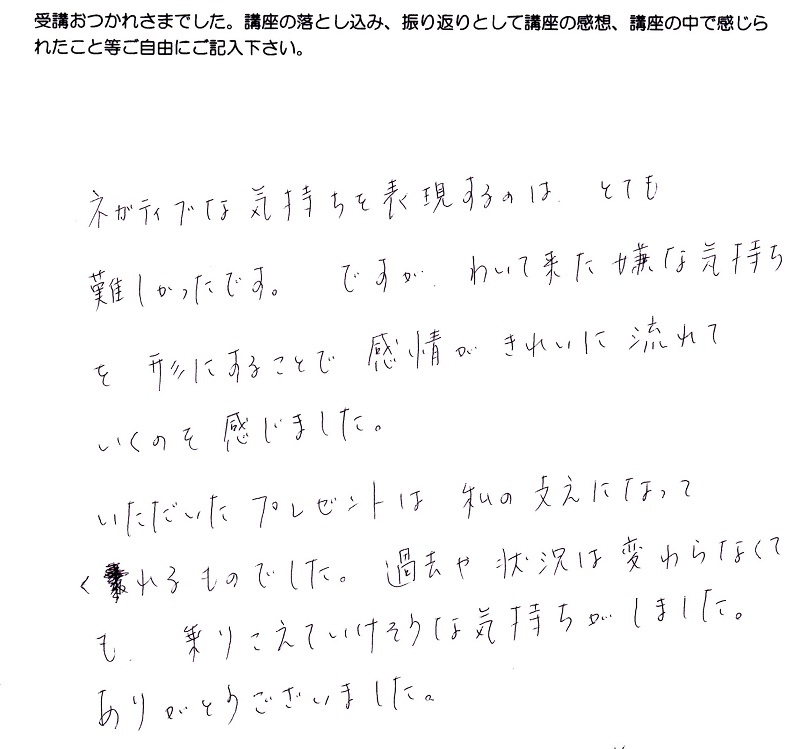 受講おつかれさまでした。講座の落とし込み、振り返りとして講座の感想、講座の中で感じら
れたこと等ご自由にご記入下さい。
ネガティブな気持ちを表現するのは、とても
難しかったです。ですが、わいて来た嫌な気持ち
を形にすることで感情がきれいに流れて
いくのを感じました。
いただいたプレゼントは私の支えになって
くれるものでした。過去や状況は変わらなくて
も、乗りこえていけそうな気持ちがしました。
ありがとうございました。